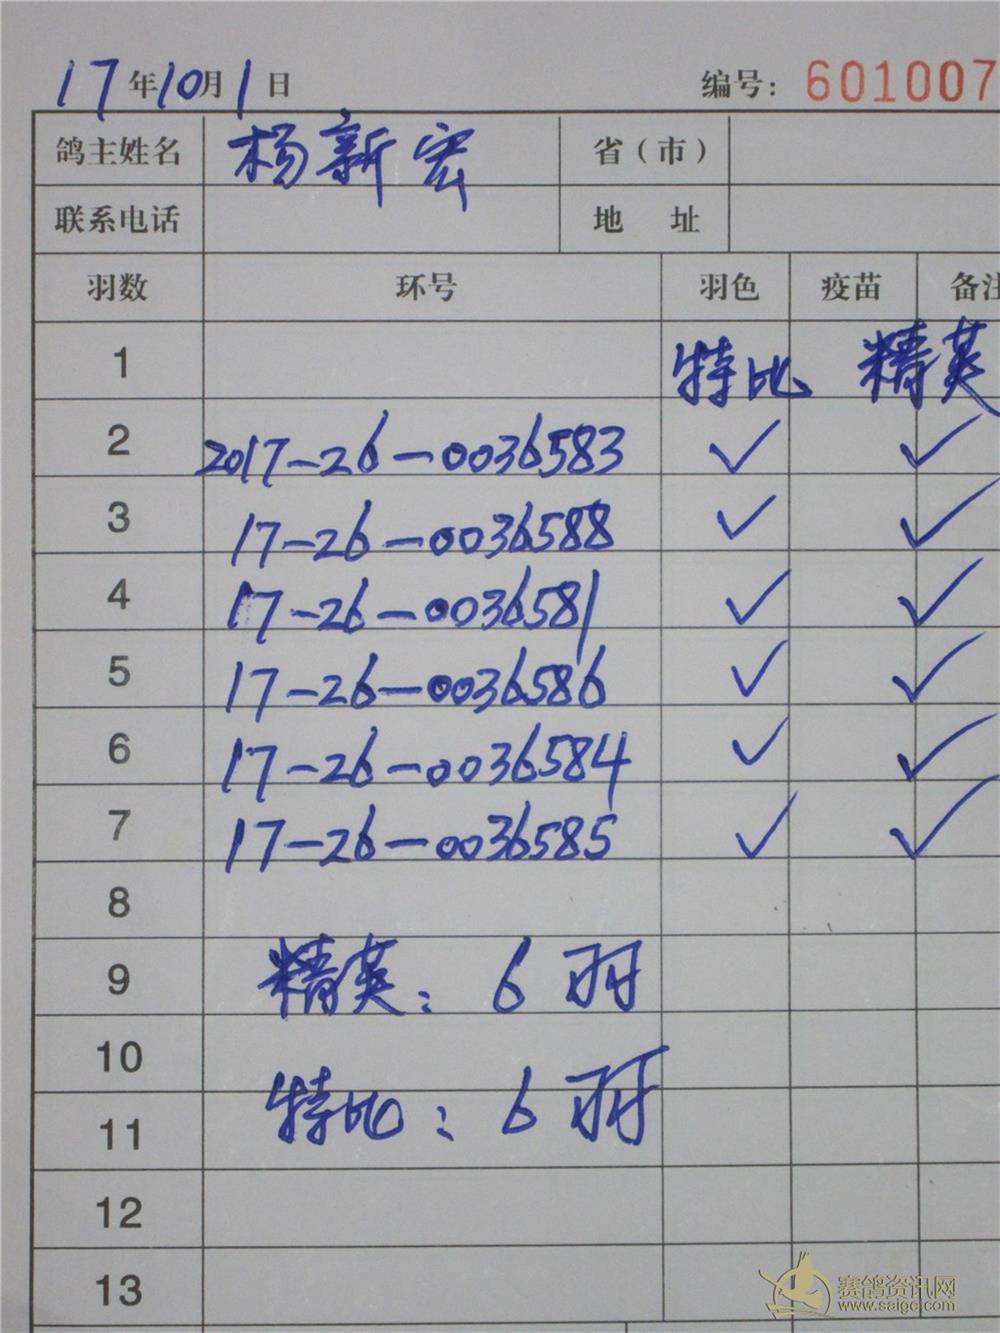 17年10月1日 编号: 601007
鸽主姓名 杨新宏 省（市）
联系电话 地 址
羽数 环号 羽色 疫苗 备注
1 特比 精英
2 2017-26-0036583 ✓ ✓
3 17-26-0036588 ✓ ✓
4 17-26-0036581 ✓ ✓
5 17-26-0036586 ✓ ✓
6 17-26-0036584 ✓ ✓
7 17-26-0036585 ✓ ✓
8
9 精英: 6羽
10
11 特比: 6羽
12
13
赛鸽资讯网
www.saige.com